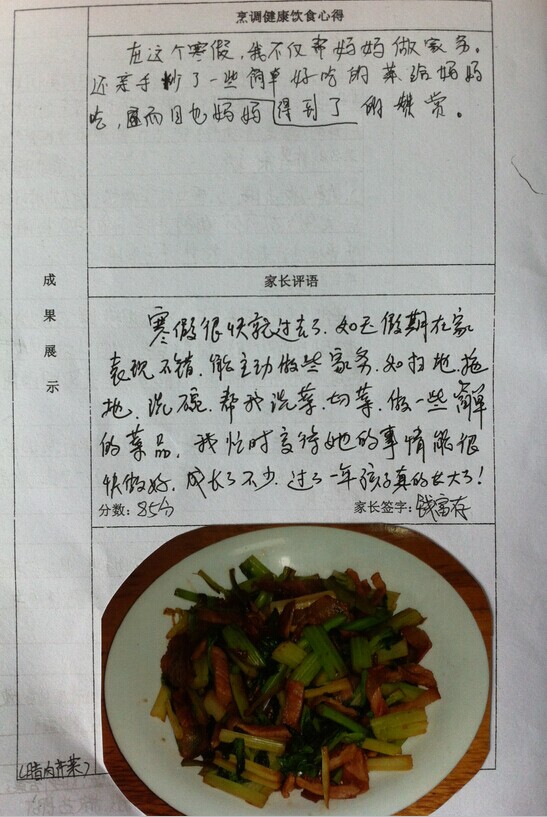 烹调健康饮食心得
在这个寒假，我不仅帮妈妈做家务。
还亲手炒了一些简单好吃的菜给妈妈
吃，而且也妈妈得到了的赞赏。
成果展示
家长评语
寒假很快就过去了，如玉假期在家
表现不错，能主动做些家务，如扫地、拖
地、洗碗，帮我洗菜、切菜，做一些简单
的菜品，我忙时交待她的事情能很
快做好，成长了不少，过了一年孩子真的长大了！
分数：85分
家长签字：钱富存
（腊肉芹菜）